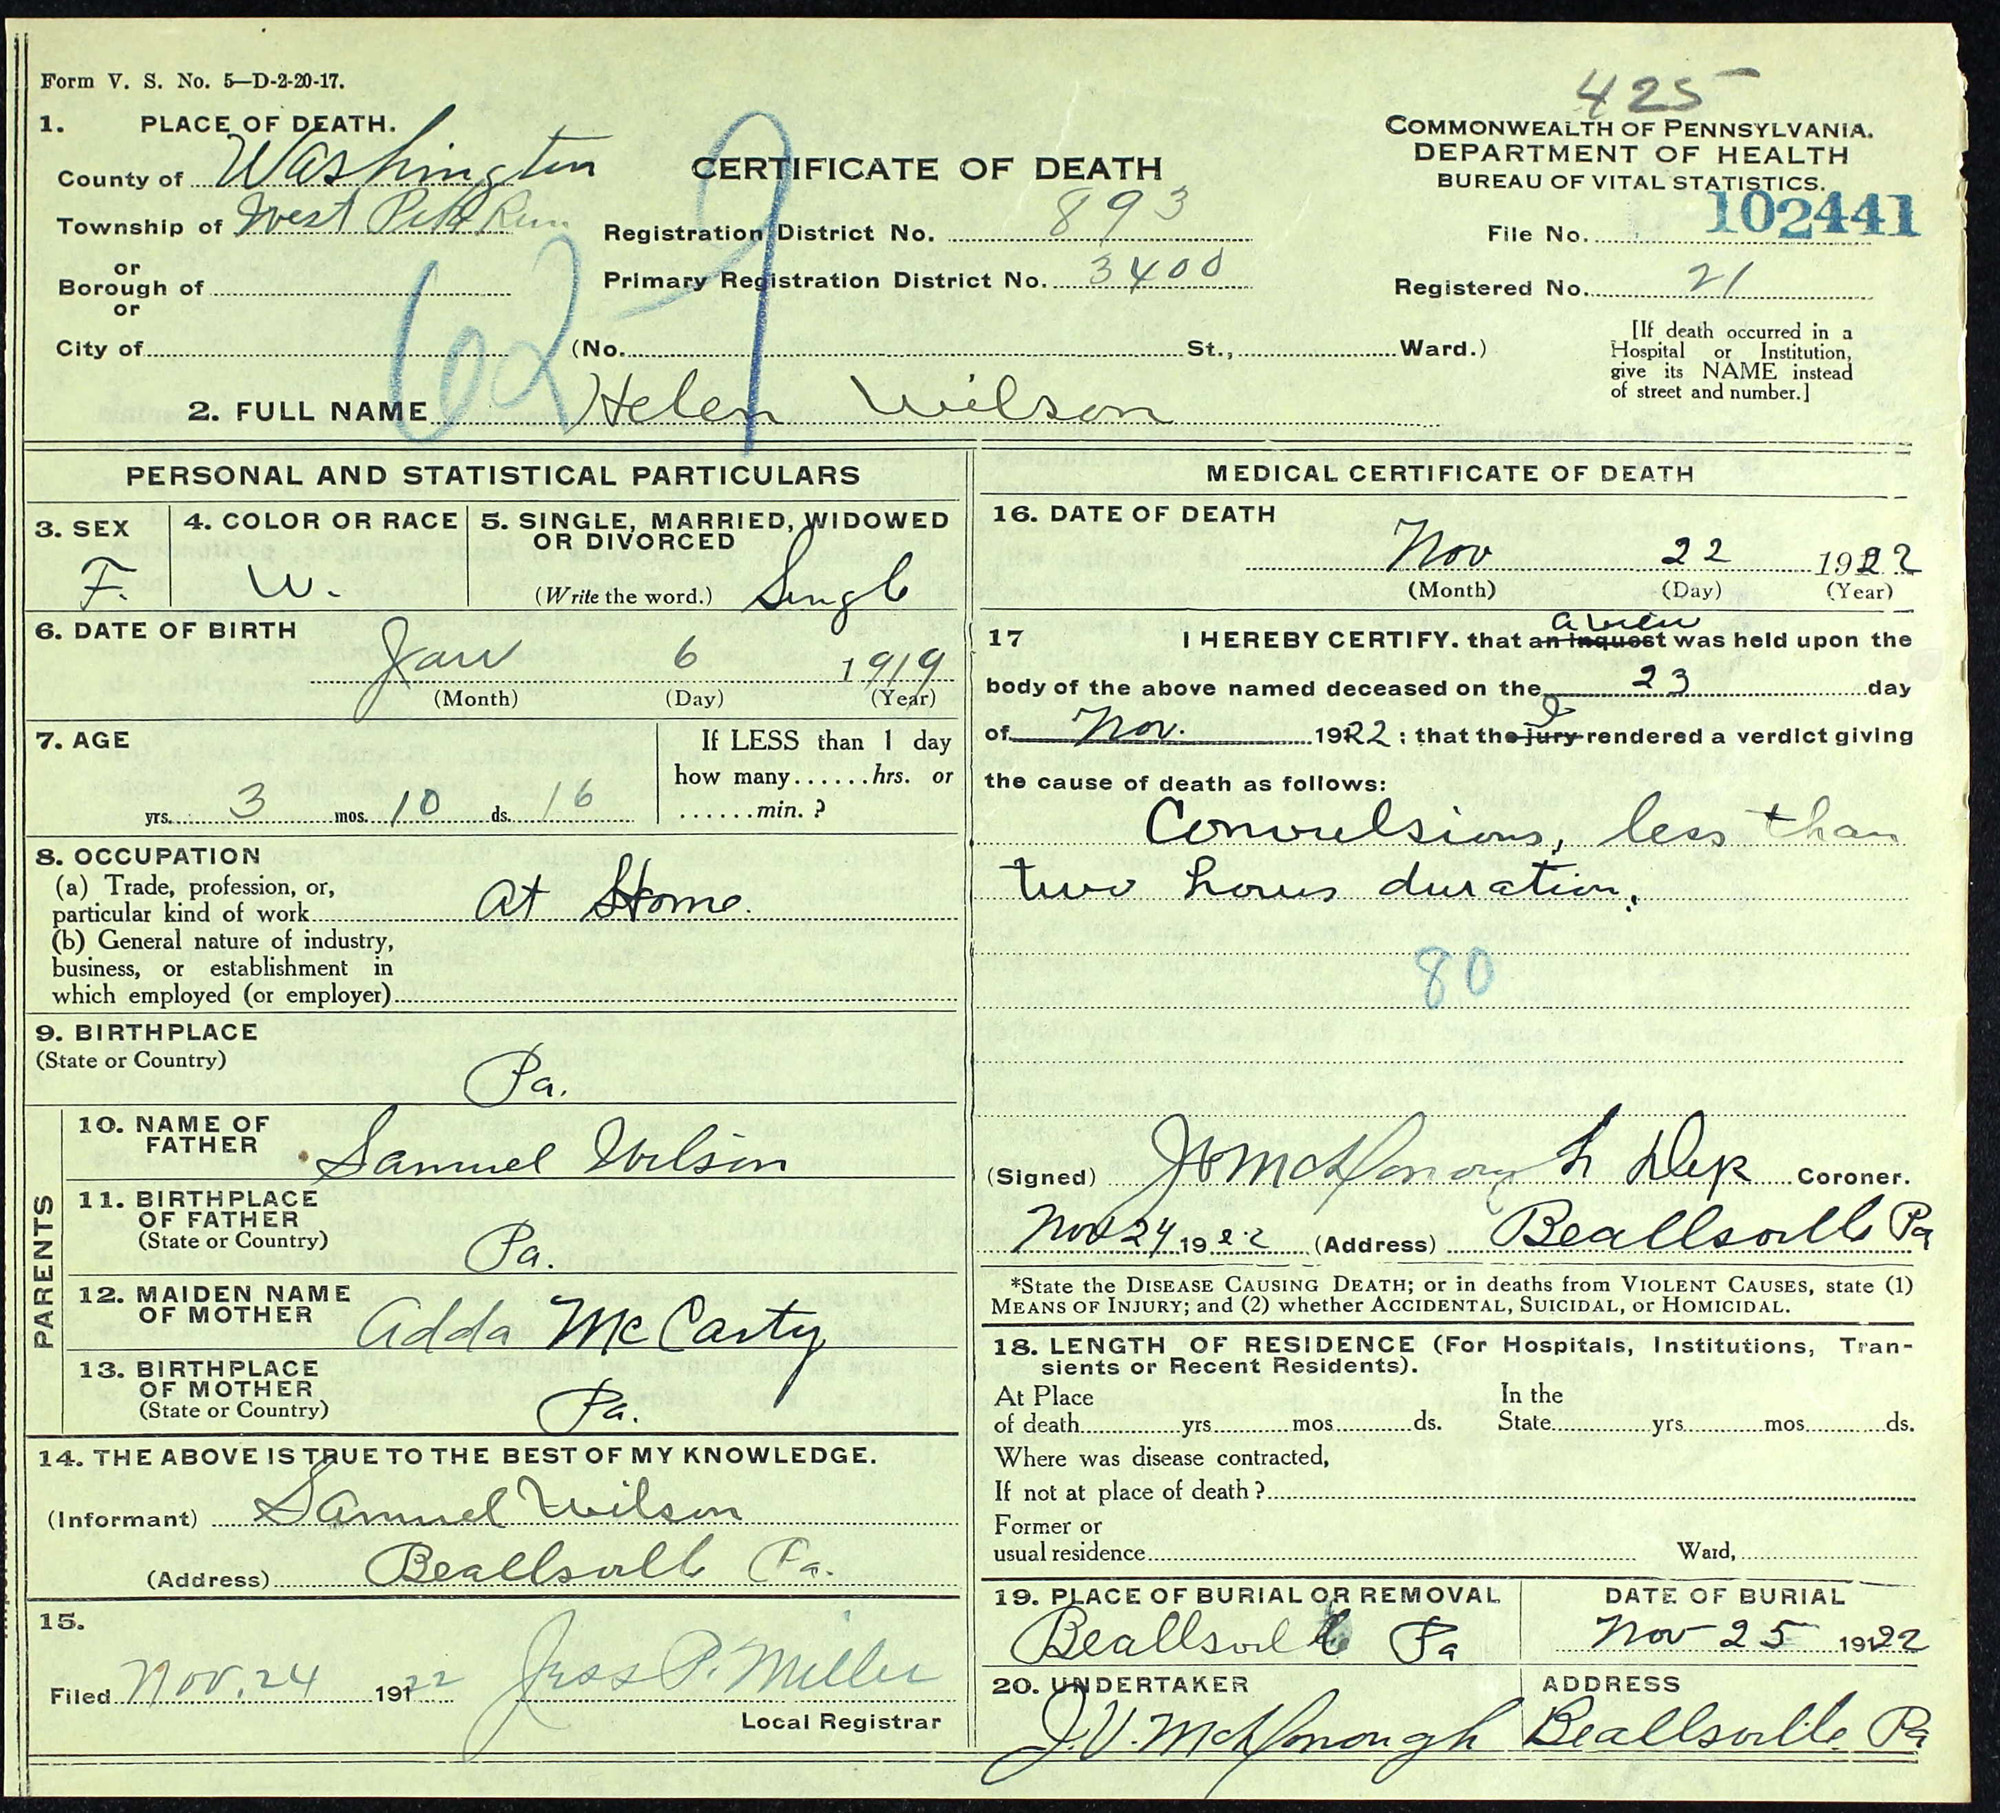 Form V. S. No. 5—D-2-20-17.
425
1. PLACE OF DEATH.
County of Washington
Township of West Pike Run
or
Borough of
or
City of
CERTIFICATE OF DEATH
Registration District No. 893
Primary Registration District No. 3400
(No. St., Ward.)
COMMONWEALTH OF PENNSYLVANIA.
DEPARTMENT OF HEALTH
BUREAU OF VITAL STATISTICS.
File No. 102441
Registered No. 21
[If death occurred in a
Hospital or Institution,
give its NAME instead
of street and number.]
629
2. FULL NAME Helen Wilson
PERSONAL AND STATISTICAL PARTICULARS
3. SEX
F.
4. COLOR OR RACE
W.
5. SINGLE, MARRIED, WIDOWED
OR DIVORCED
(Write the word.) Single
6. DATE OF BIRTH
Jan 6 1919
(Month) (Day) (Year)
7. AGE
yrs. 3 mos. 10 ds. 16
If LESS than 1 day
how many......hrs. or
......min. ?
8. OCCUPATION
(a) Trade, profession, or,
particular kind of work At Home.
(b) General nature of industry,
business, or establishment in
which employed (or employer)
9. BIRTHPLACE
(State or Country)
Pa.
PARENTS
10. NAME OF
FATHER Samuel Wilson
11. BIRTHPLACE
OF FATHER
(State or Country) Pa.
12. MAIDEN NAME
OF MOTHER Adda McCarty
13. BIRTHPLACE
OF MOTHER
(State or Country) Pa.
14. THE ABOVE IS TRUE TO THE BEST OF MY KNOWLEDGE.
(Informant) Samuel Wilson
(Address) Beallsville Pa.
15.
Filed Nov. 24 19122 Jess P. Miller
Local Registrar
MEDICAL CERTIFICATE OF DEATH
16. DATE OF DEATH
Nov 22 1922
(Month) (Day) (Year)
a view
17 I HEREBY CERTIFY. that an inquest was held upon the
body of the above named deceased on the 23 day
I
of Nov. 1922 ; that the jury rendered a verdict giving
the cause of death as follows:
Convulsions, less than
two hours duration.
80
(Signed) J V McDonough Dep Coroner.
Nov 24 1922 (Address) Beallsville Pa
*State the DISEASE CAUSING DEATH; or in deaths from VIOLENT CAUSES, state (1)
MEANS OF INJURY; and (2) whether ACCIDENTAL, SUICIDAL, or HOMICIDAL.
18. LENGTH OF RESIDENCE (For Hospitals, Institutions, Tran-
sients or Recent Residents).
At Place In the
of death yrs. mos. ds. State yrs. mos. ds.
Where was disease contracted,
If not at place of death ?
Former or
usual residence Ward,
19. PLACE OF BURIAL OR REMOVAL
Beallsville Pa
DATE OF BURIAL
Nov 25 1922
20. UNDERTAKER
J. V. McDonough
ADDRESS
Beallsville Pa